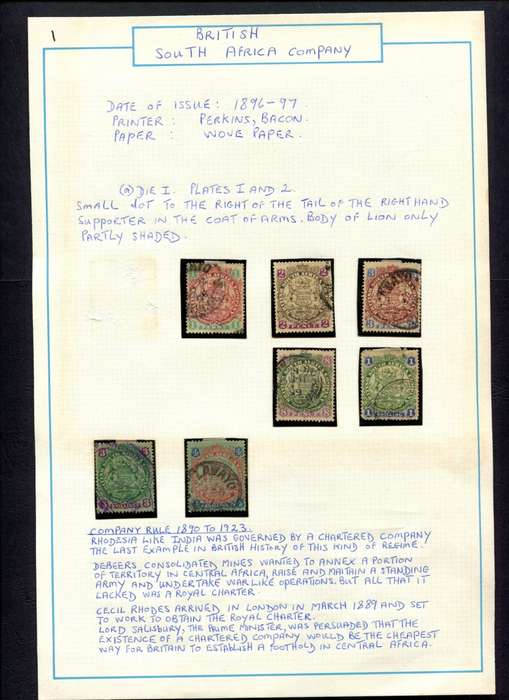 1
BRITISH
SOUTH AFRICA COMPANY
DATE OF ISSUE: 1896-97.
PRINTER: PERKINS, BACON.
PAPER: WOVE PAPER.
(a) DIE I. PLATES 1 AND 2.
SMALL DOT TO THE RIGHT OF THE TAIL OF THE RIGHT HAND
SUPPORTER IN THE COAT OF ARMS. BODY OF LION ONLY
PARTLY SHADED.
1 1
PENNY
2 2
PENCE
3 3
PENCE
8 8
PENCE
1 1
SHILLING
3 3
4 4
COMPANY RULE 1890 TO 1923.
RHODESIA LIKE INDIA WAS GOVERNED BY A CHARTERED COMPANY
THE LAST EXAMPLE IN BRITISH HISTORY OF THIS KIND OF REGIME.
DEBEERS CONSOLIDATED MINES WANTED TO ANNEX A PORTION
OF TERRITORY IN CENTRAL AFRICA, RAISE AND MAITAIN A STANDING
ARMY AND UNDERTAKE WAR LIKE OPERATIONS. BUT ALL THAT IT
LACKED WAS A ROYAL CHARTER.
CECIL RHODES ARRIVED IN LONDON IN MARCH 1889 AND SET
TO WORK TO OBTAIN THE ROYAL CHARTER.
LORD SALISBURY, THE PRIME MINISTER, WAS PERSUADED THAT THE
EXISTENCE OF A CHARTERED COMPANY WOULD BE THE CHEAPEST
WAY FOR BRITAIN TO ESTABLISH A FOOTHOLD IN CENTRAL AFRICA.